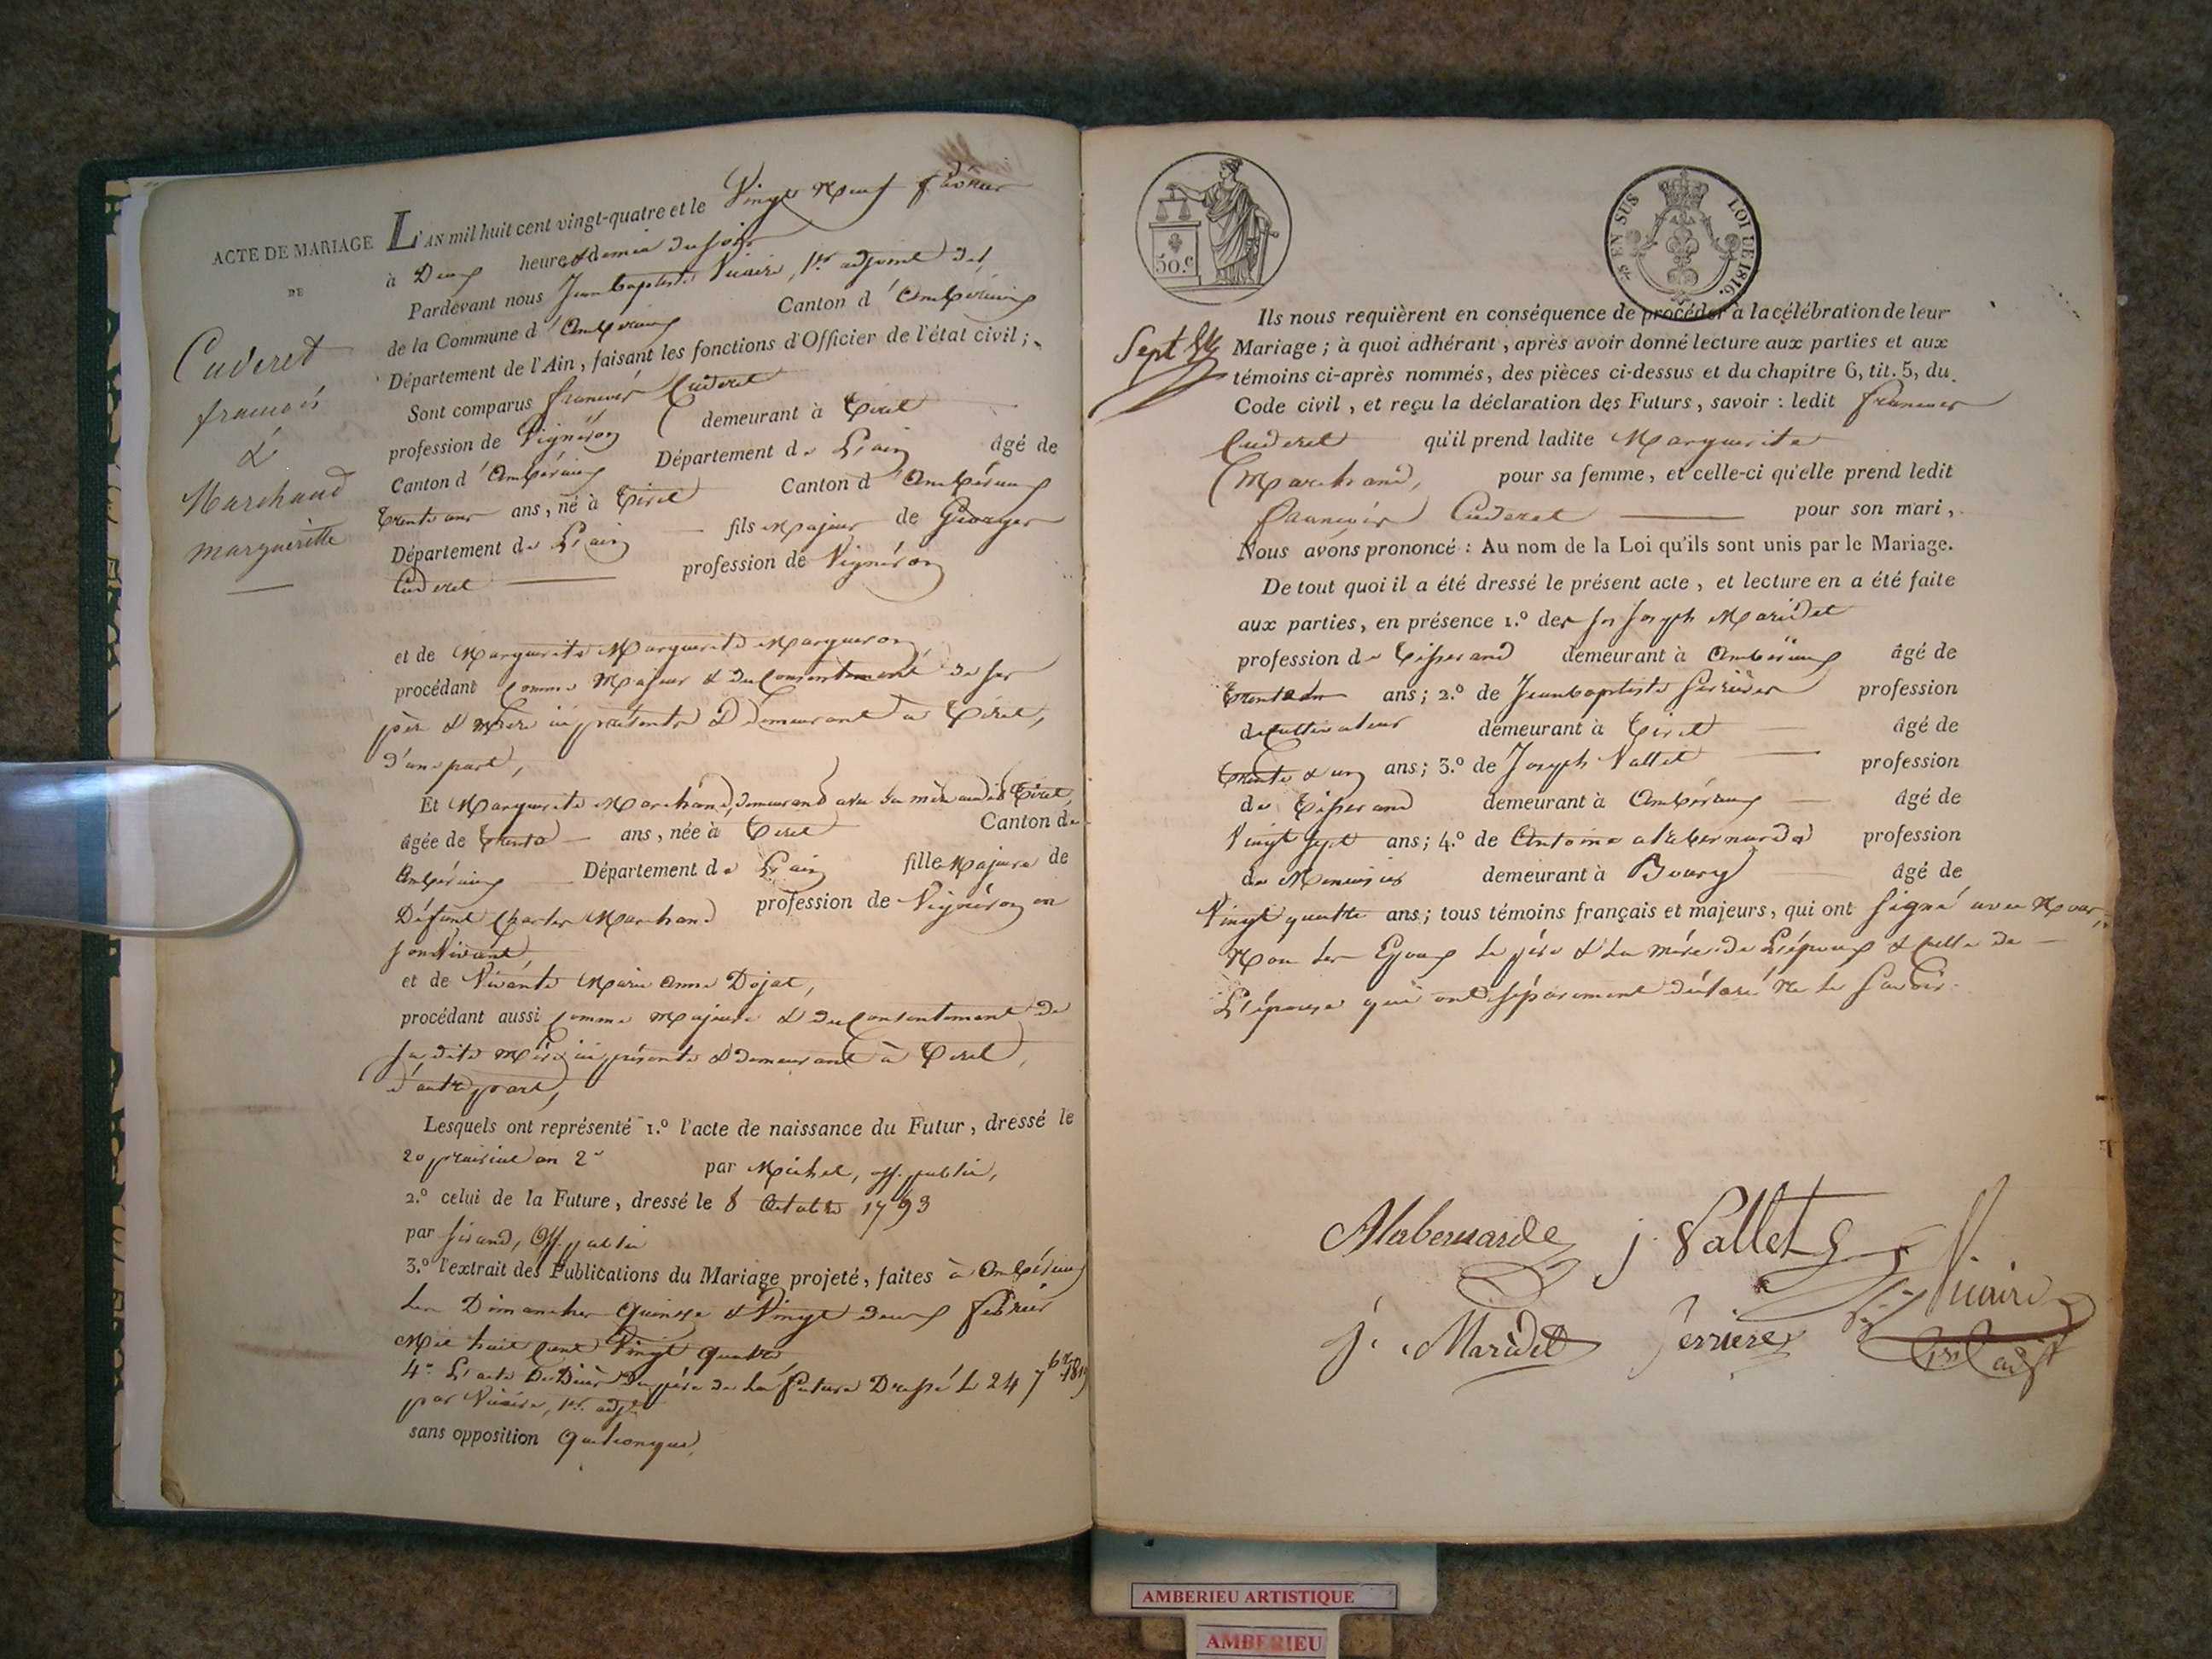 ACTE DE MARIAGE
DE
Cuderet
françois
&
Marchand
margueritte
L'AN mil huit cent vingt-quatre et le Vingt Neuf février
à Deux heures & demie du soir
Pardevant nous Jean baptiste Vicaire, 1er adjoint
de la Commune d'Ambérieux Canton d'Ambérieux
Département de l'Ain, faisant les fonctions d'Officier de l'état civil;
Sont comparus francois Cuderet
profession de Vignéron demeurant à Tiret
Canton d'Ambérieux Département de L'ain âgé de
trente ans ans, né à Tiret Canton d'Ambérieux
Département de L'ain fils Majeur de Georges
Cuderet profession de Vignéron
et de Marguerite Marguerite Margueron
procédant Comme Majeur & du Consentement de ses
père & Mere ici présents & Demeurant à Tiret,
d'une part,
Et Marguerite Marchand, demeurand avec sa mère audit Tiret,
âgée de trente ans, née à Tiret Canton de
Ambérieux Département de L'ain fille Majeure de
Défunt Charles Marchand profession de Vignéron en
son Vivant,
et de Vivante Marie Anne Dojat,
procédant aussi Comme Majeure & du Consentement de
sa dite Mère ici présente & demeurant à Tiret,
d'autre part,
Lesquels ont représenté 1.º l'acte de naissance du Futur, dressé le
20 prairial an 2e par Michel, off. public,
2.º celui de la Future, dressé le 8 Octobre 1793
par Sirand, Off. public
3.º l'extrait des Publications du Mariage projeté, faites à Ambérieux
Les Dimanches Quinze & Vingt deux février
Mil huit Cent Vingt Quatre
4º L'acte De Décès Du père de La future Dressé Le 24 7bre
par Vicaire, 1er adjt
sans opposition Quelconque,
50.c
EN SUS
LOI DE 1816.
Sept
Ils nous requièrent en conséquence de procéder à la célébration de leur
Mariage; à quoi adhérant, après avoir donné lecture aux parties et aux
témoins ci-après nommés, des pièces ci-dessus et du chapitre 6, tit. 5, du
Code civil, et reçu la déclaration des Futurs, savoir : ledit francois
Cuderet qu'il prend ladite Marguerite
Marchand, pour sa femme, et celle-ci qu'elle prend ledit
francois Cuderet pour son mari,
Nous avons prononcé : Au nom de la Loi qu'ils sont unis par le Mariage.
De tout quoi il a été dressé le présent acte, et lecture en a été faite
aux parties, en présence 1.º des Srs Joseph Maridet
profession de tisserand demeurant à Ambérieux âgé de
ans; 2.º de Jean baptiste ferrieres profession
de Cultivateur demeurant à Tiret âgé de
trente & un ans; 3.º de Joseph Vallet profession
de Tisserand demeurant à Ambérieux âgé de
Vingt Sept ans; 4.º de Antoine alabernarde profession
de Menuisier demeurant à Bourg âgé de
Vingt quatre ans; tous témoins français et majeurs, qui ont signé avec Nous,
Non Les Epoux Le père & La mère de L'époux & Celle de
L'épouse qui ont séparement déclaré Ne Le Savoir.
Alabernarde j. Vallet
Vicaire
j. Maridet ferrieres
1er adjt
AMBERIEU ARTISTIQUE
AMBERIEU